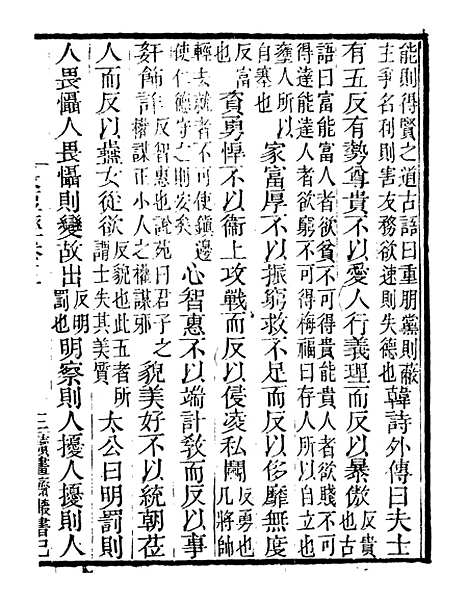 能則得賢之道古語曰重朋黨則蔽
主爭名利則害友務欲速則失德也韓詩外傳曰夫士
有五反有勢尊貴不以愛人行義理而反以暴傲反貴也古
語曰富能富人者欲貧不可得貴能貴人者欲賤不可
得達能達人者欲窮不可得梅福曰存人所以自立也
壅人所以自塞也家富厚不以振窮救不足而反以侈靡無度
反富也資勇悍不以衞上攻戰而反以侵凌私鬭反勇也凡將帥
輕去就者不可使鎮邊
使仁德守之則安矣心智惠不以端計敎而反以事
姦飾詐反智惠也說苑曰君子之權謀正小人之權謀邪貌美好不以統朝莅
人而反以燕女從欲反貌也此五者所謂士失其美質太公曰明罰則
人畏懾人畏懾則變故出反明罰也明察則人擾人擾則人
三讀畫齋叢書已